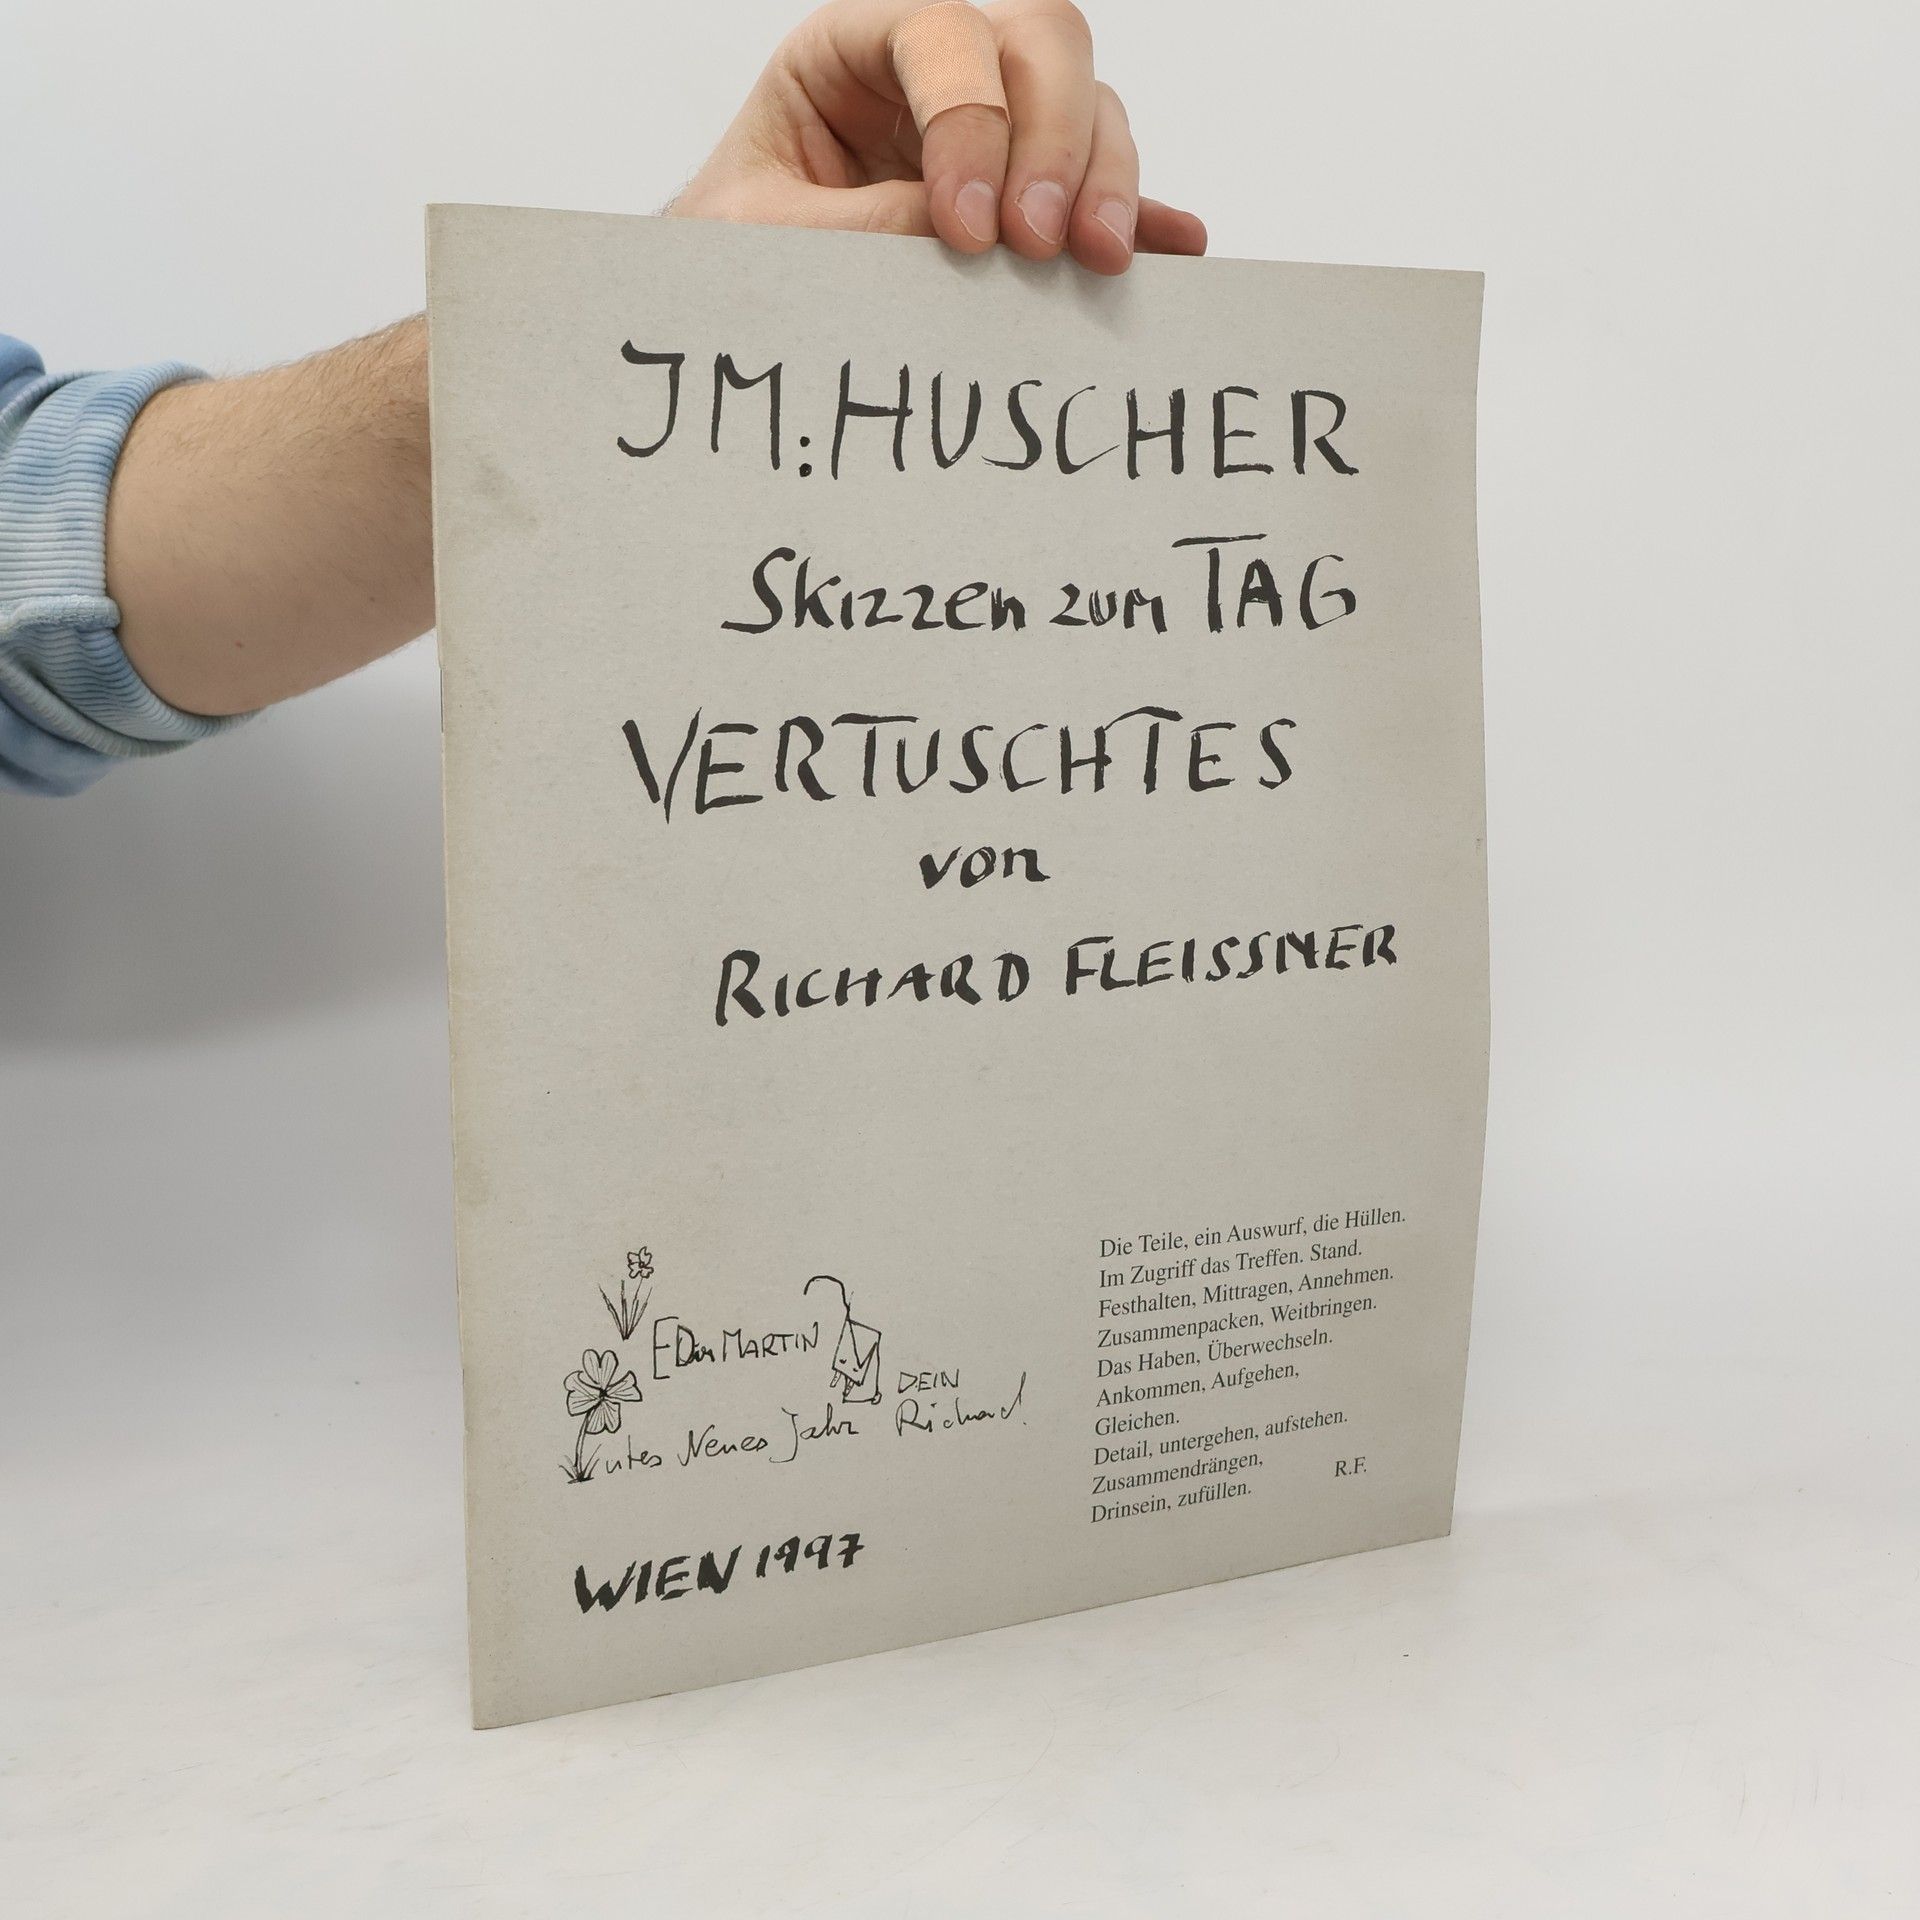 IM:HUSCHER
Skizzen zum TAG
VERTUSCHTES
von
RICHARD FLEISSNER
MARTIN
DEIN
Neues Jahr Richard
Die Teile, ein Auswurf, die Hüllen.
Im Zugriff das Treffen. Stand.
Festhalten, Mittragen, Annehmen.
Zusammenpacken, Weitbringen.
Das Haben, Überwechseln.
Ankommen, Aufgehen,
Gleichen.
Detail, untergehen, aufstehen.
Zusammendrängen,
Drinsein, zufüllen.
R.F.
WIEN 1997